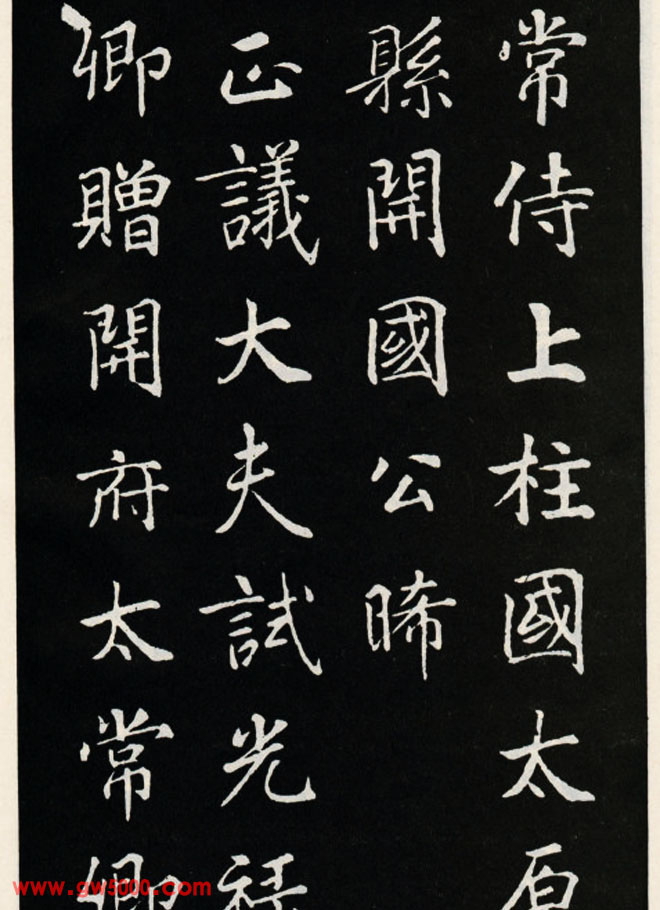 常侍上柱國太原
縣開國公晞
正議大夫試光禄
卿贈開府太常卿
www.gw5000.com